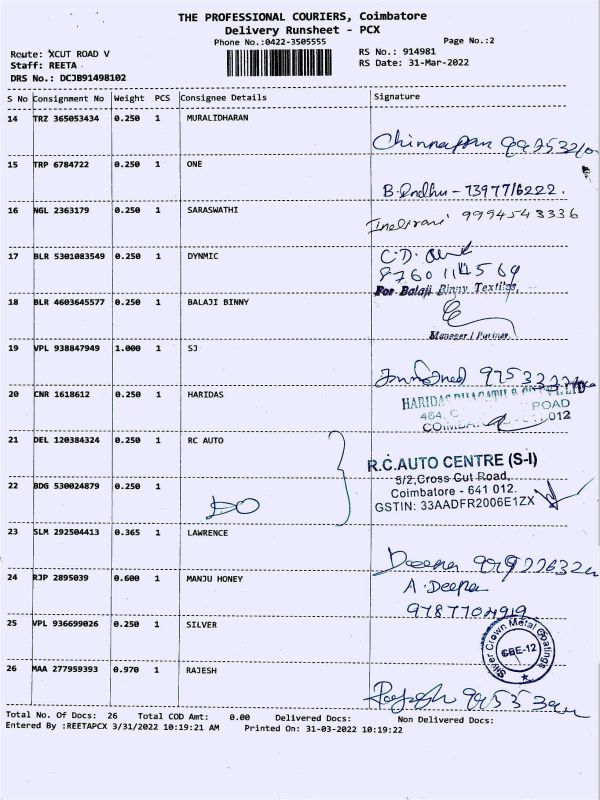 THE PROFESSIONAL COURIERS, Coimbatore
Delivery Runsheet - PCX
Phone No.:0422-3505555 Page No.:2
Route: XCUT ROAD V RS No.: 914981
Staff: REETA RS Date: 31-Mar-2022
DRS No.: DCJB91498102
S No Consignment No Weight PCS Consignee Details Signature
14 TRZ 365053434 0.250 1 MURALIDHARAN
15 TRP 6784722 0.250 1 ONE
B.Indhu - 7397716222.
16 NGL 2363179 0.250 1 SARASWATHI
9994543336
17 BLR 5301083549 0.250 1 DYNMIC
C.D.
8760114569
For Balaji Binny Textiles,
18 BLR 4603645577 0.250 1 BALAJI BINNY
Manager / Partner.
19 VPL 938847949 1.000 1 SJ
20 CNR 1618612 0.250 1 HARIDAS
HARIDAS
464, C ROAD
012
21 DEL 120384324 0.250 1 RC AUTO
R.C.AUTO CENTRE (S-I)
5/2,Cross Cut Road,
22 BDG 530024879 0.250 1
Coimbatore - 641 012.
DO
GSTIN: 33AADFR2006E1ZX
23 SLM 292504413 0.365 1 LAWRENCE
Deepa
24 RJP 2895039 0.600 1 MANJU HONEY
A.Deepa
9787704919
25 VPL 936699026 0.250 1 SILVER
Silver Crown Metal Coatings
CBE-12
26 MAA 277959393 0.970 1 RAJESH
Rajesh
Total No. Of Docs: 26 Total COD Amt: 0.00 Delivered Docs: Non Delivered Docs:
Entered By :REETAPCX 3/31/2022 10:19:21 AM Printed On: 31-03-2022 10:19:22